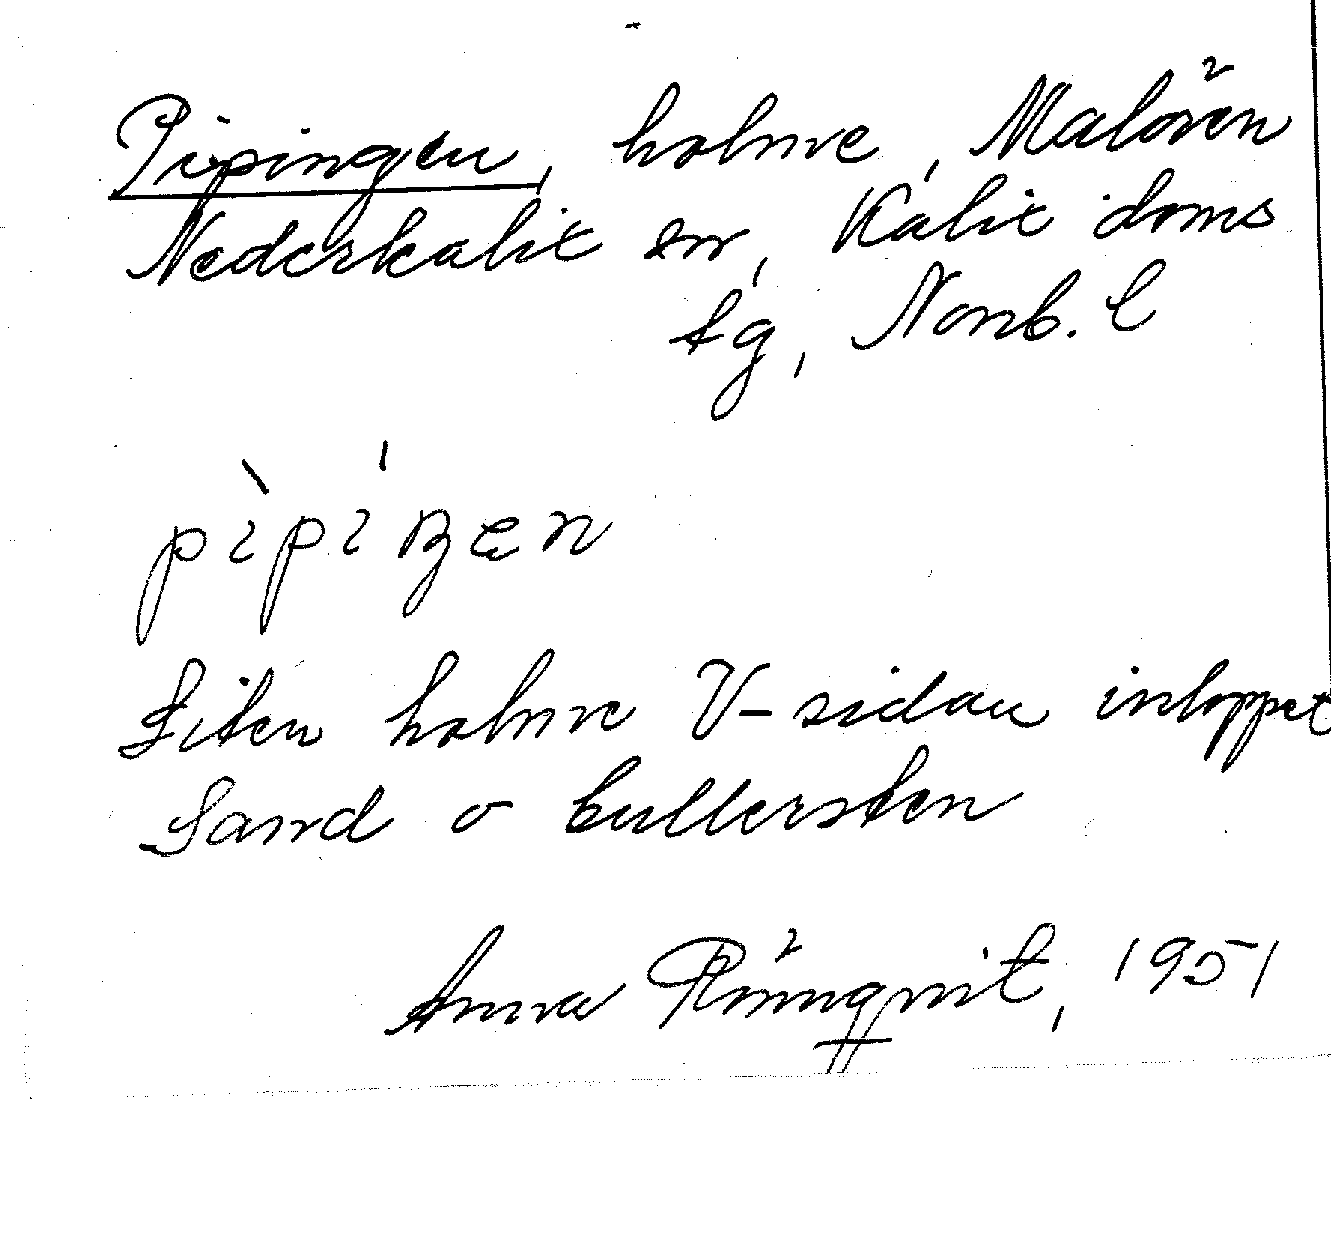 Pipingen, holme, Malören
Nederkalix sn, Kalix doms
tg, Norrb. l
pìpíŋen
Liten holme V-sidan inloppet
Sand o bullersten
Anna Rönnqvist, 1951